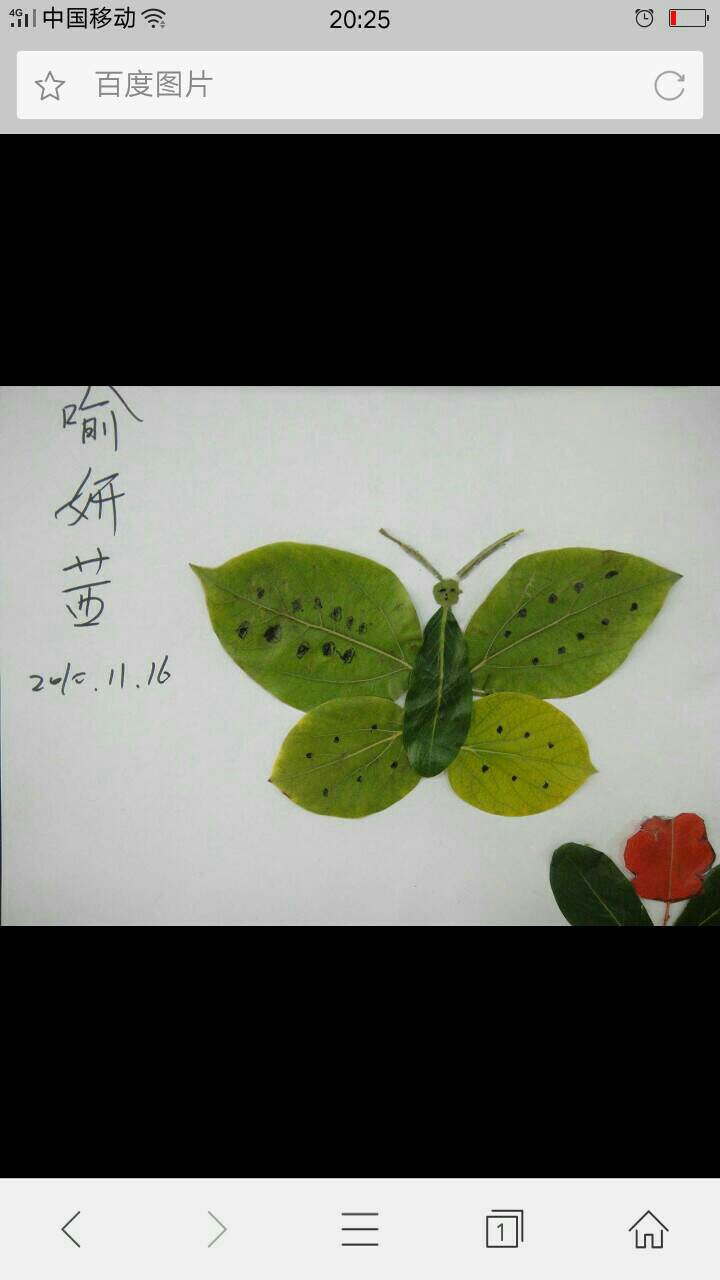 4G 中国移动 20:25
百度图片
喻
妍
茜
11.16
1